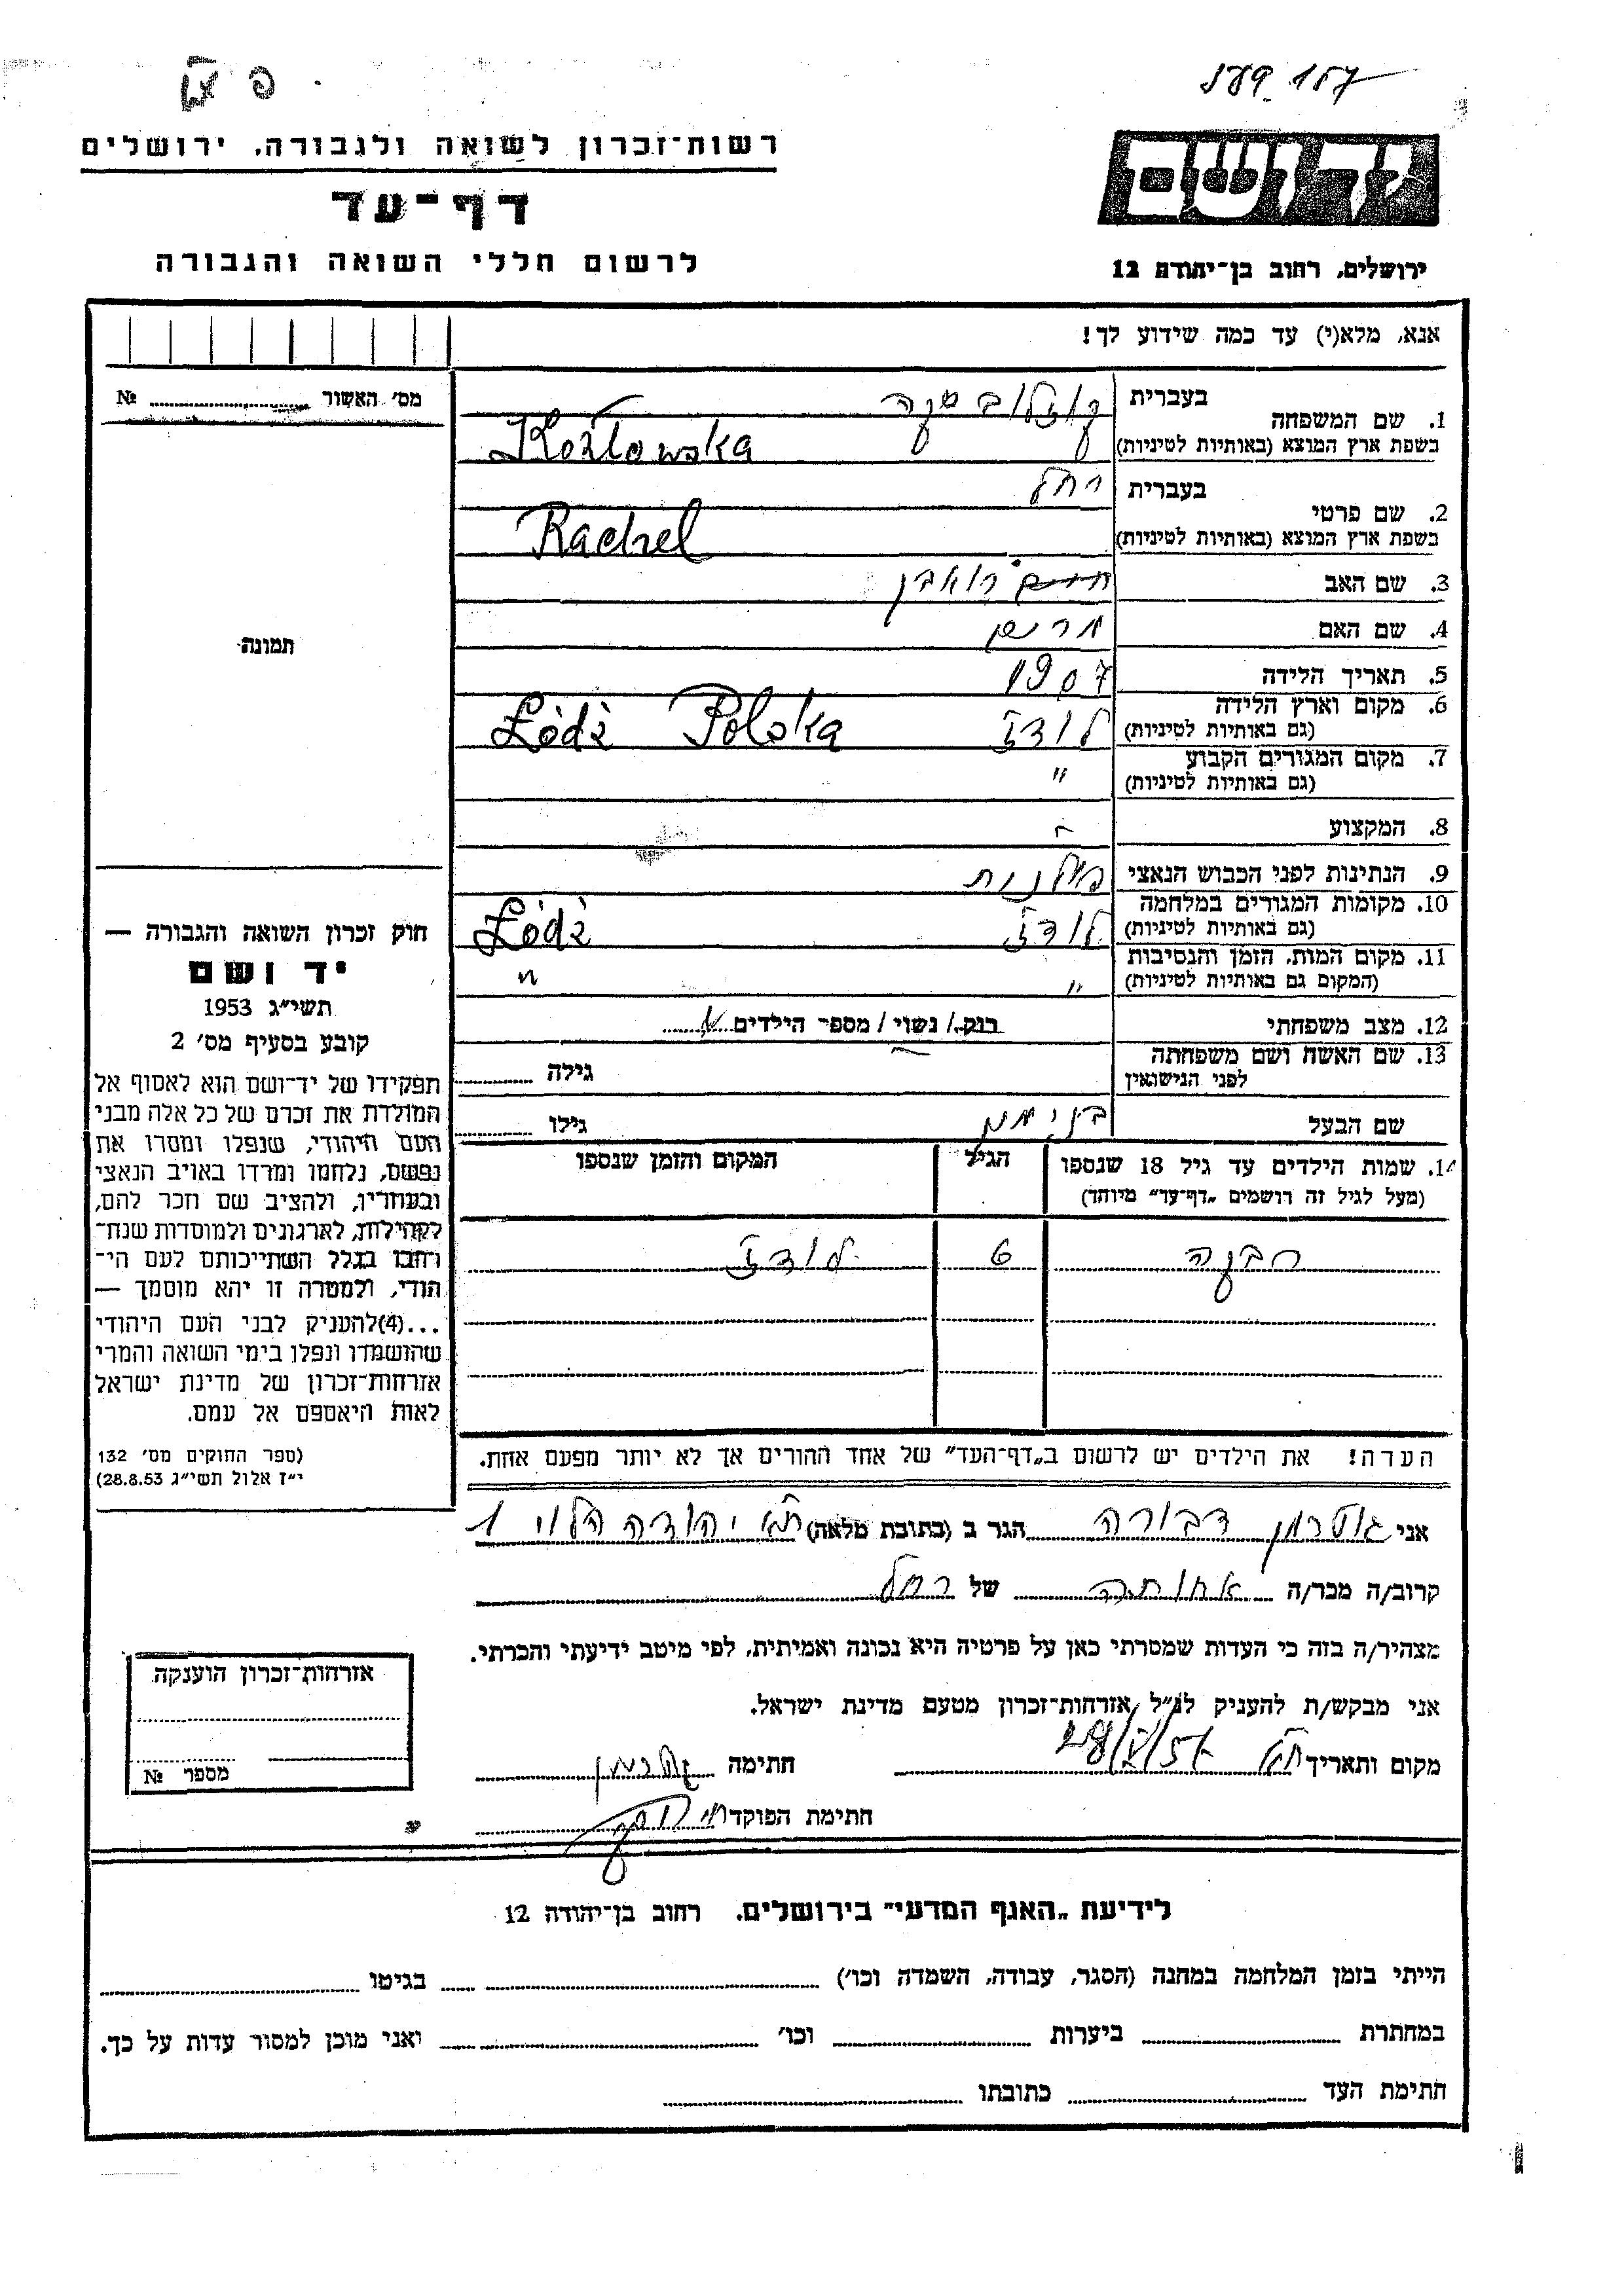 רשות־זכרון לשואה ולגבורה, ירושלים
דף־עד
לרשום חללי השואה והגבורה
יד ושם
ירושלים, רחוב בן־יהודה 12
אנא, מלא(י) עד כמה שידוע לך!
מס׳ האשור ........ №
תמונה
1. שם המשפחה בעברית קוזלובסקה
בשפת ארץ המוצא (באותיות לטיניות) Kozłowska
2. שם פרטי בעברית רחל
בשפת ארץ המוצא (באותיות לטיניות) Rachel
3. שם האב חיים ראובן
4. שם האם מרים
5. תאריך הלידה 1907
6. מקום וארץ הלידה (גם באותיות לטיניות) לודז Łódź Polska
7. מקום המגורים הקבוע (גם באותיות לטיניות) "
8. המקצוע -
9. הנתינות לפני הכבוש הנאצי פולנית
10. מקומות המגורים במלחמה (גם באותיות לטיניות) לודז Łódź
11. מקום המות, הזמן והנסיבות (המקום גם באותיות לטיניות) " "
12. מצב משפחתי רוק/ נשוי/ מספר הילדים
13. שם האשה ושם משפחתה לפני הנישואין גילה
שם הבעל בנימין גילו
14. שמות הילדים עד גיל 18 שנספו
(מעל לגיל זה רושמים „דף־עד” מיוחד)
הגיל
המקום והזמן שנספו
רבקה 6 לודז
הערה! את הילדים יש לרשום ב„דף־העד” של אחד ההורים אך לא יותר מפעם אחת.
חוק זכרון השואה והגבורה —
יד ושם
תשי״ג 1953
קובע בסעיף מס׳ 2
תפקידו של יד־ושם הוא לאסוף אל
המולדת את זכרם של כל אלה מבני
העם היהודי, שנפלו ומסרו את
נפשם, נלחמו ומרדו באויב הנאצי
ובעוזריו, ולהציב שם וזכר להם,
לקהילות, לארגונים ולמוסדות שנח־
רבו בגלל השתייכותם לעם הי־
הודי, ולמטרה זו יהא מוסמך —
...(4) להעניק לבני העם היהודי
שהושמדו ונפלו בימי השואה והמרי
אזרחות־זכרון של מדינת ישראל
לאות היאספם אל עמם.
(ספר החוקים מס׳ 132
י״ז אלול תשי״ג 28.8.53)
אני גוטרמן דבורה הגר ב (כתובת מלאה) ת״א יהודה הלוי 1
קרוב/ה מכר/ה אחותה של רחל
מצהיר/ה בזה כי העדות שמסרתי כאן על פרטיה היא נכונה ואמיתית, לפי מיטב ידיעתי והכרתי.
אני מבקש/ת להעניק לנ״ל אזרחות־זכרון מטעם מדינת ישראל.
מקום ותאריך ת״א חתימה
חתימת הפוקד
אזרחות־זכרון הוענקה
מספר №
לידיעת „האגף המדעי” בירושלים, רחוב בן־יהודה 12
הייתי בזמן המלחמה במחנה (הסגר, עבודה, השמדה וכו׳) בגיטו
במחתרת ביערות וכו׳ ואני מוכן למסור עדות על כך.
חתימת העד כתובתו